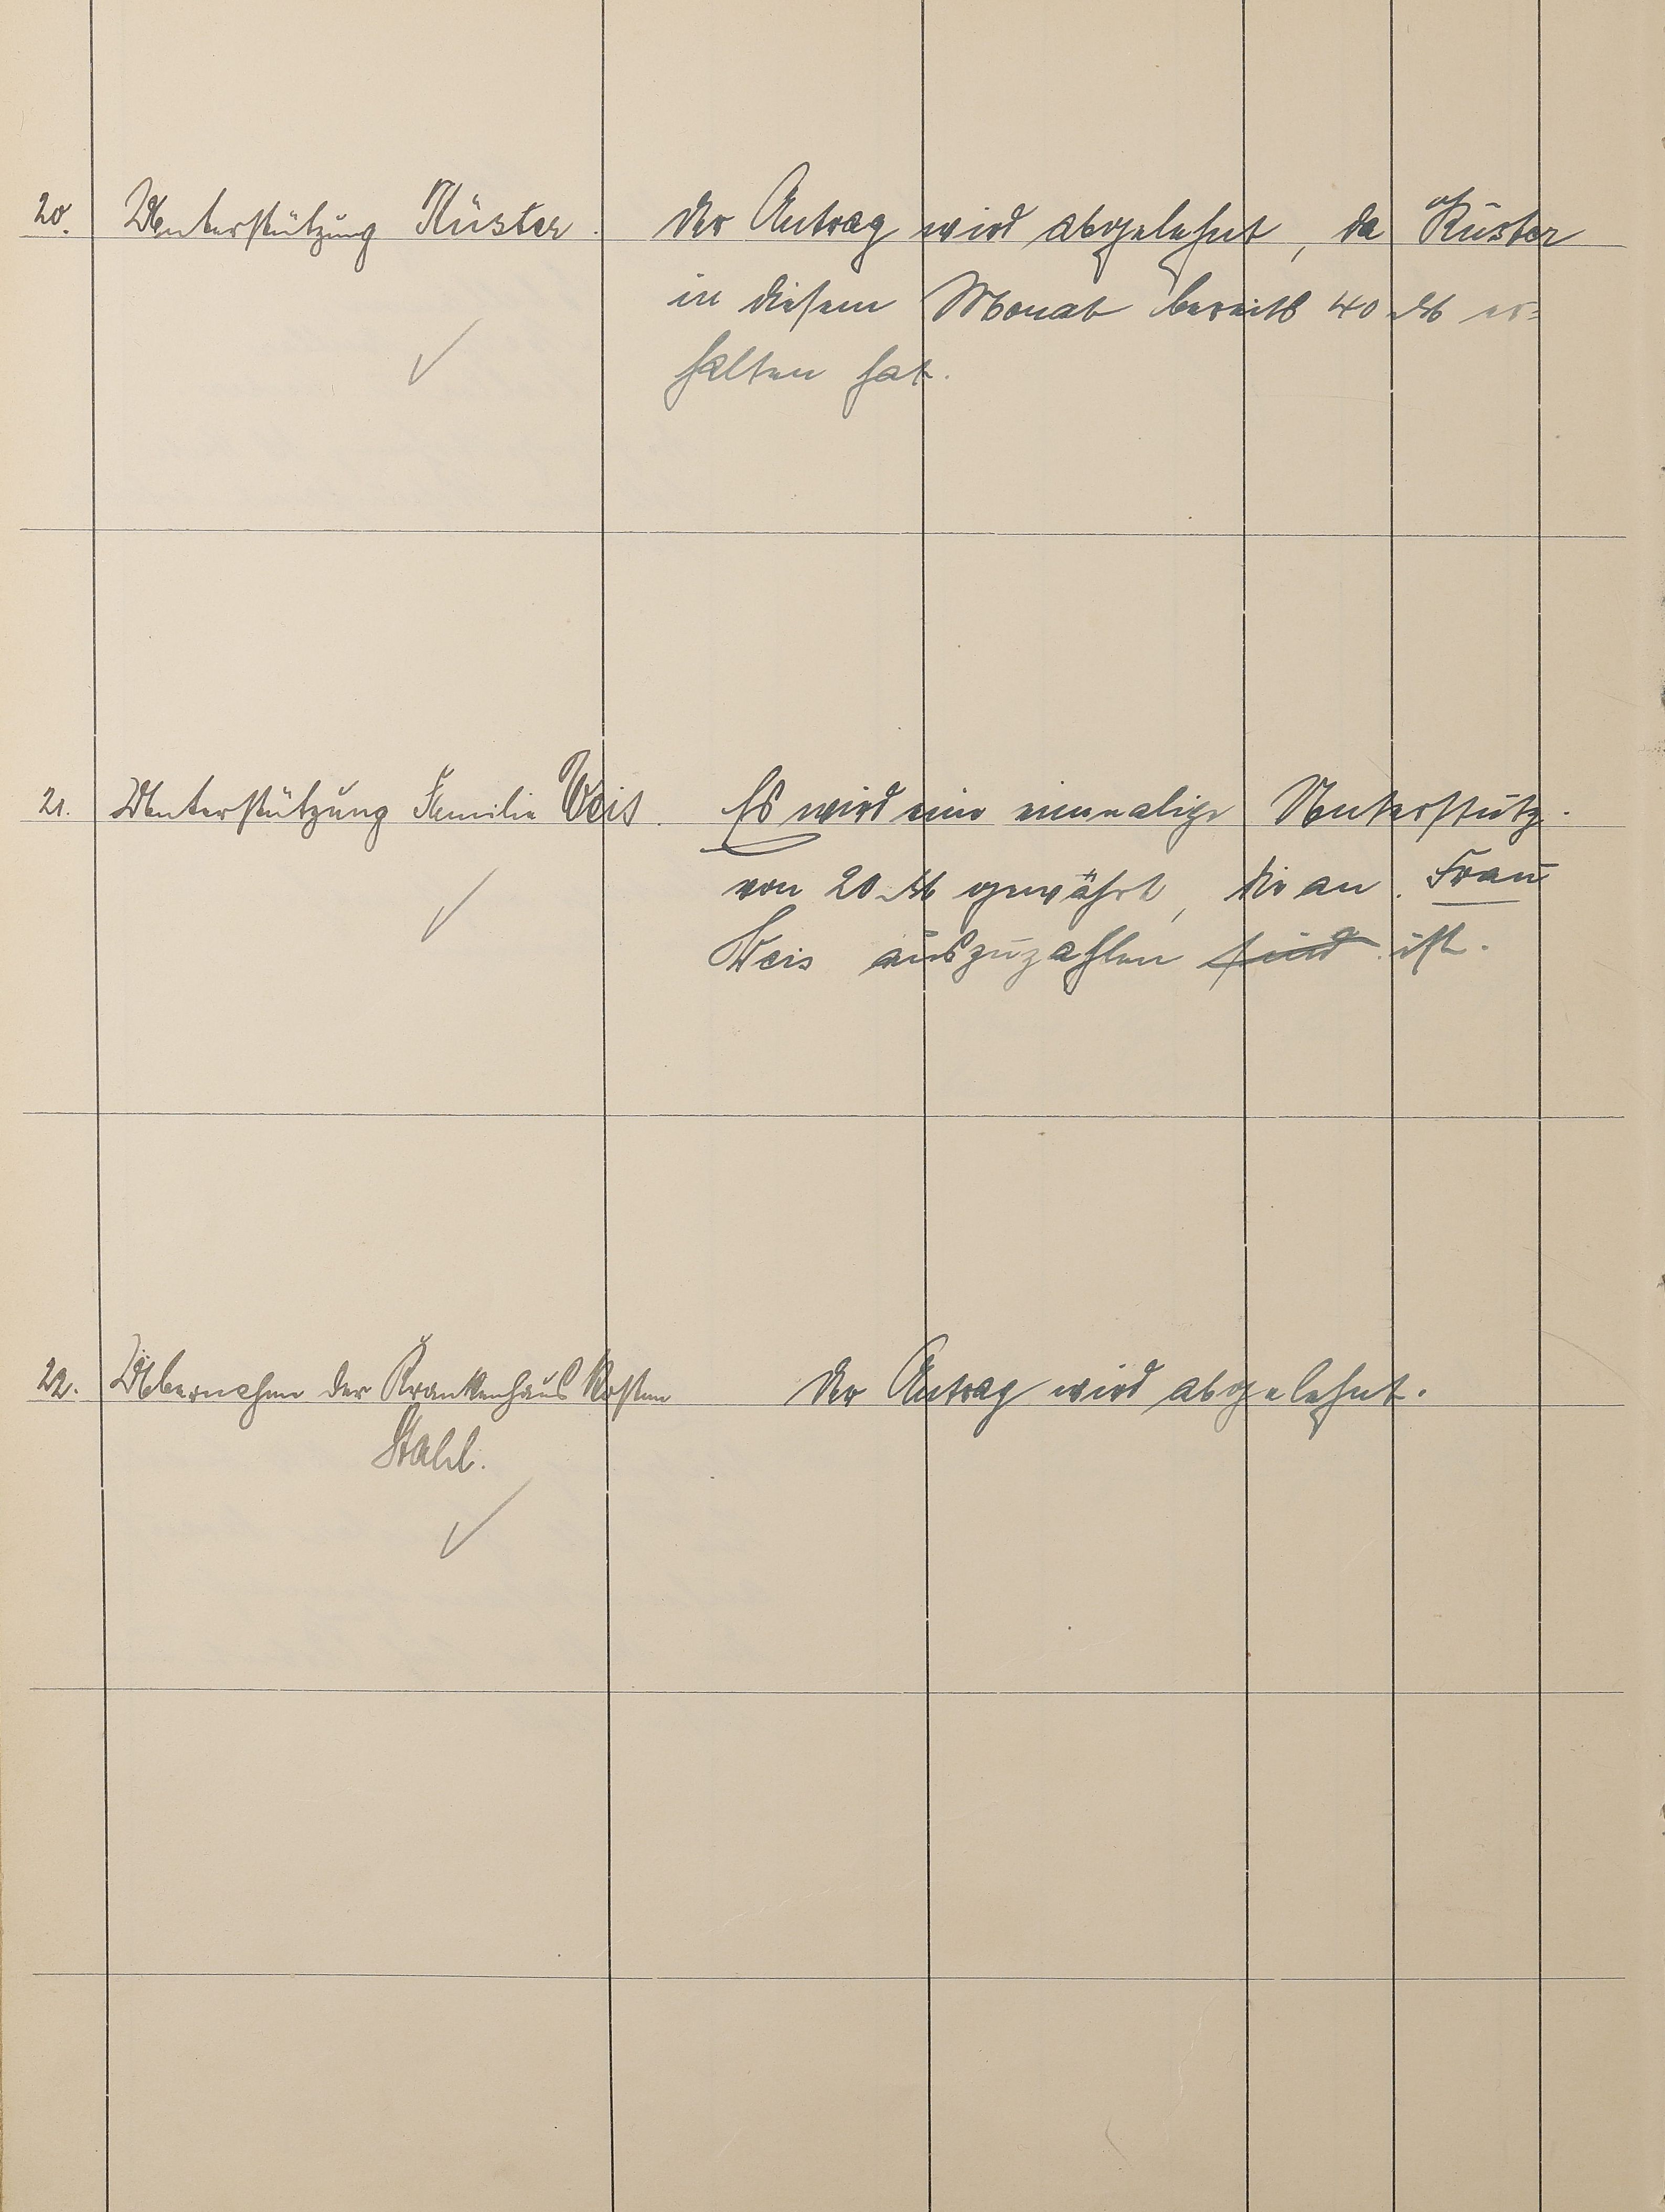 20. Unterstützung Küster. Der Antrag wird abgelehnt, da Küster
in diesem Monat bereits 40 M er=
halten hat.
21. Unterstützung Familie Weis. Es wird eine einmalige Unterstütz.
von 20 M gewährt, die an Frau
Weis auszuzahlen sind ist.
22. Übernahme der Krankenhaus Kosten Der Antrag wird abgelehnt.
Stahl.